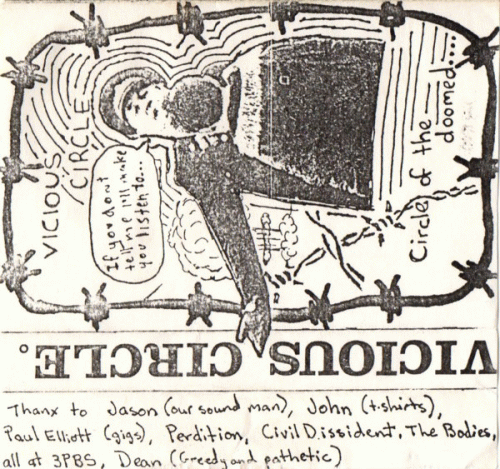 VICIOUS
CIRCLE
If you dont
tell me I'll make
you listen to...
Circle of the
doomed....
VICIOUS CIRCLE.
Thanx to Jason (our sound man), John (t.shirts),
Paul Elliott (gigs), Perdition, Civil Dissident, The Bodies,
all at 3PBS, Dean (Greedy and pathetic)